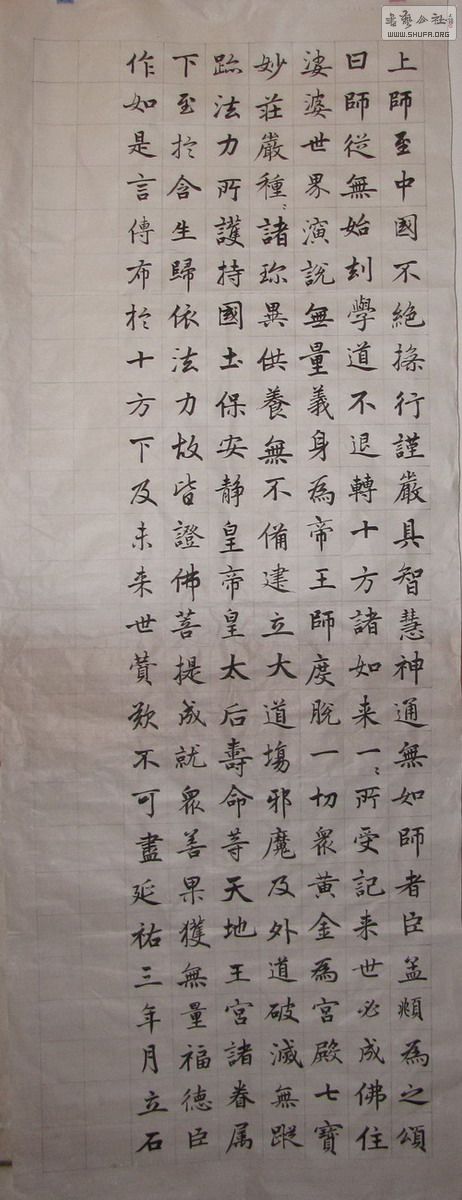 書藝公社
WWW.SHUFA.ORG
上師至中國不絶操行謹嚴具智慧神通無如師者臣孟頫為之頌
曰師從無始刦學道不退轉十方諸如来一〻所受記来世必成佛住
娑婆世界演說無量義身為帝王師度脫一切衆黃金為宮殿七寶
妙莊嚴種〻諸珎異供養無不備建立大道塲邪魔及外道破滅無蹤
跡法力所護持國土保安静皇帝皇太后壽命等天地王宮諸眷属
下至於含生歸依法力故皆證佛菩提成就衆善果獲無量福德臣
作如是言傳布於十方下及未来世賛歎不可盡延祐三年月立石